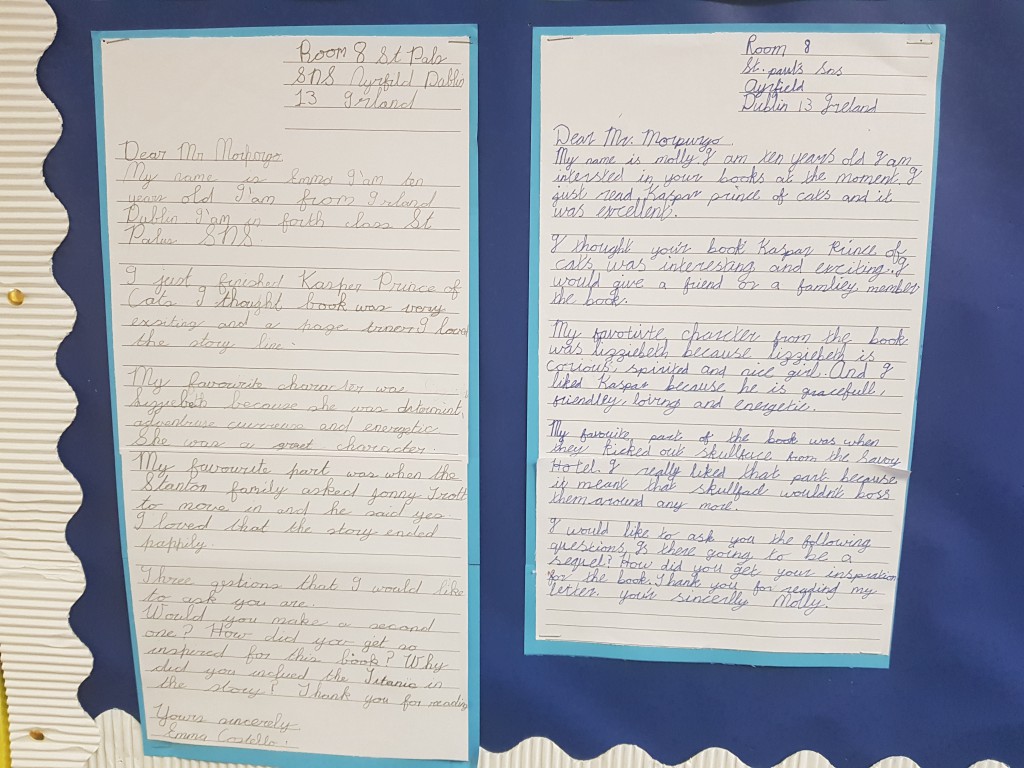 Room 8 St Pals
SNS Ayrfild Dublin
13 Irland
Dear Mr Morporgo
My name is Emma I'am ten
years old I'am from Irland
Dublin I'am in forth class St
Palus SNS.
I just finished Kasper Prince of
Cats I thought book was very
exsiting and a page I loved
the story line.
My favourite character was
because she was determint,
and energetic.
She was a great character.
My favourite part was when the
Stanton family asked Jonny Trott
to move in and he said yes
I loved that the story ended
happily.
Three qestions that I would like
to ask you are.
Would you make a second
one? How did you get so
inspired for this book? Why
did you the Titanic in
the story? Thank you for reading
Yours sincerely
Emma Costello!
Room 8
St. paul's sns
ayrfield
Dublin 13 Ireland
Dear Mr. Morpurgo
My name is molly I am ten years old I am
intersted in your books at the moment I
just read Kaspar prince of cats and it
was excellent.
I thought your book Kaspar Prince of
cats was interesting and exciting. I
would give a friend or a familey member
the book.
My favotive charcter from the book
was lizziebeth because lizziebeth is
corious, spirited and nice girl. And I
liked Kaspar because he is gracefull,
friendley, loving and energetic.
My favorite part of the book was when
they kicked out skullface from the Savoy
Hotel. I really liked that part because
it meant that skullface wouldn't boss
them around any more.
I would like to ask you the following
questions, Is there going to be a
sequel? How did you get your inspiration
for the book. Thank you for reading my
letter. your sincerlly Molly.